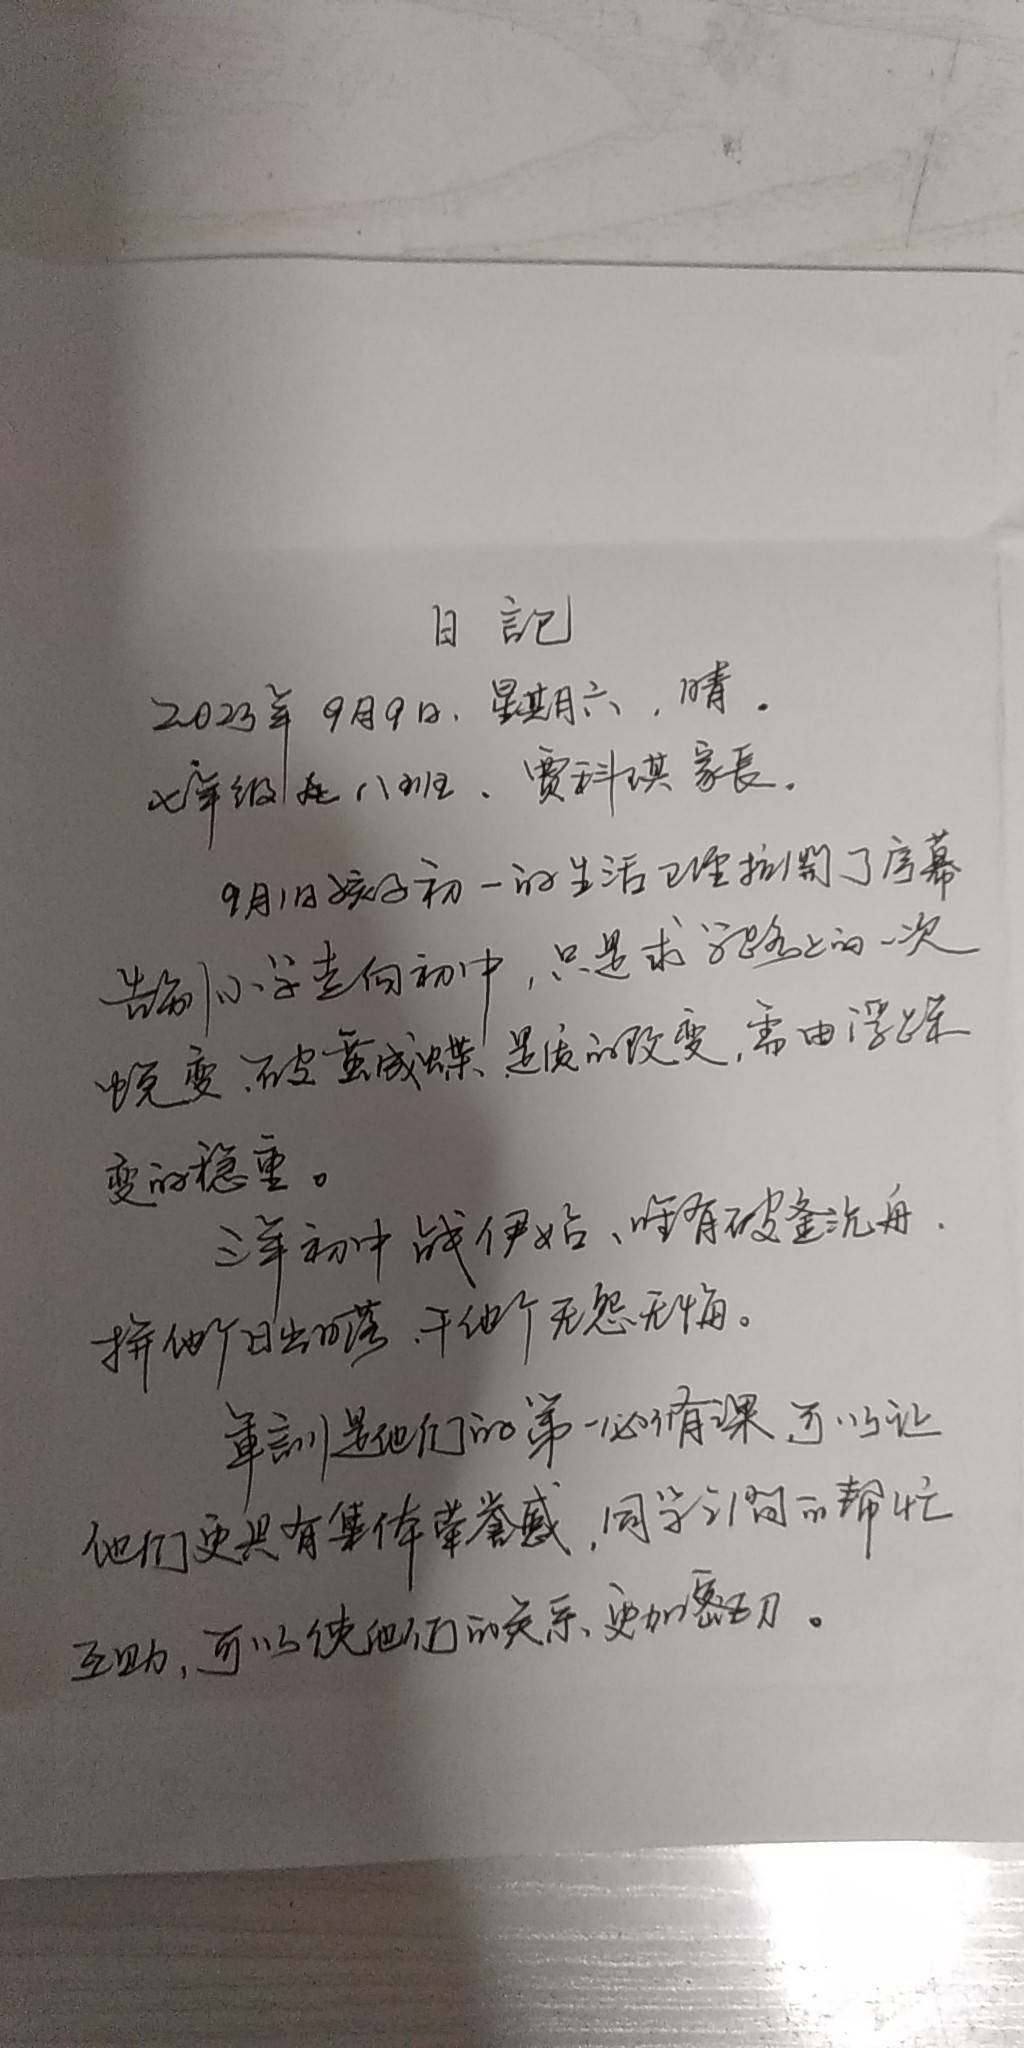 日記
2023年9月9日、星期六，晴。
七年级 八班、贾科琪家長。
9月1日孩子初一的生活已经拉開了序幕
告别小学走向初中，只是求学路上的一次
蜕变、破茧成蝶、是质的改变，需由浮躁
变的稳重。
三年初中战伊始、唯有破釜沉舟．
拼他个日出日落、干他个无怨无悔。
軍訓是他们的第一必修课，可以让
他们更具有集体荣誉感，同学之间的帮忙
互助，可以使他们的关系、更加密切。